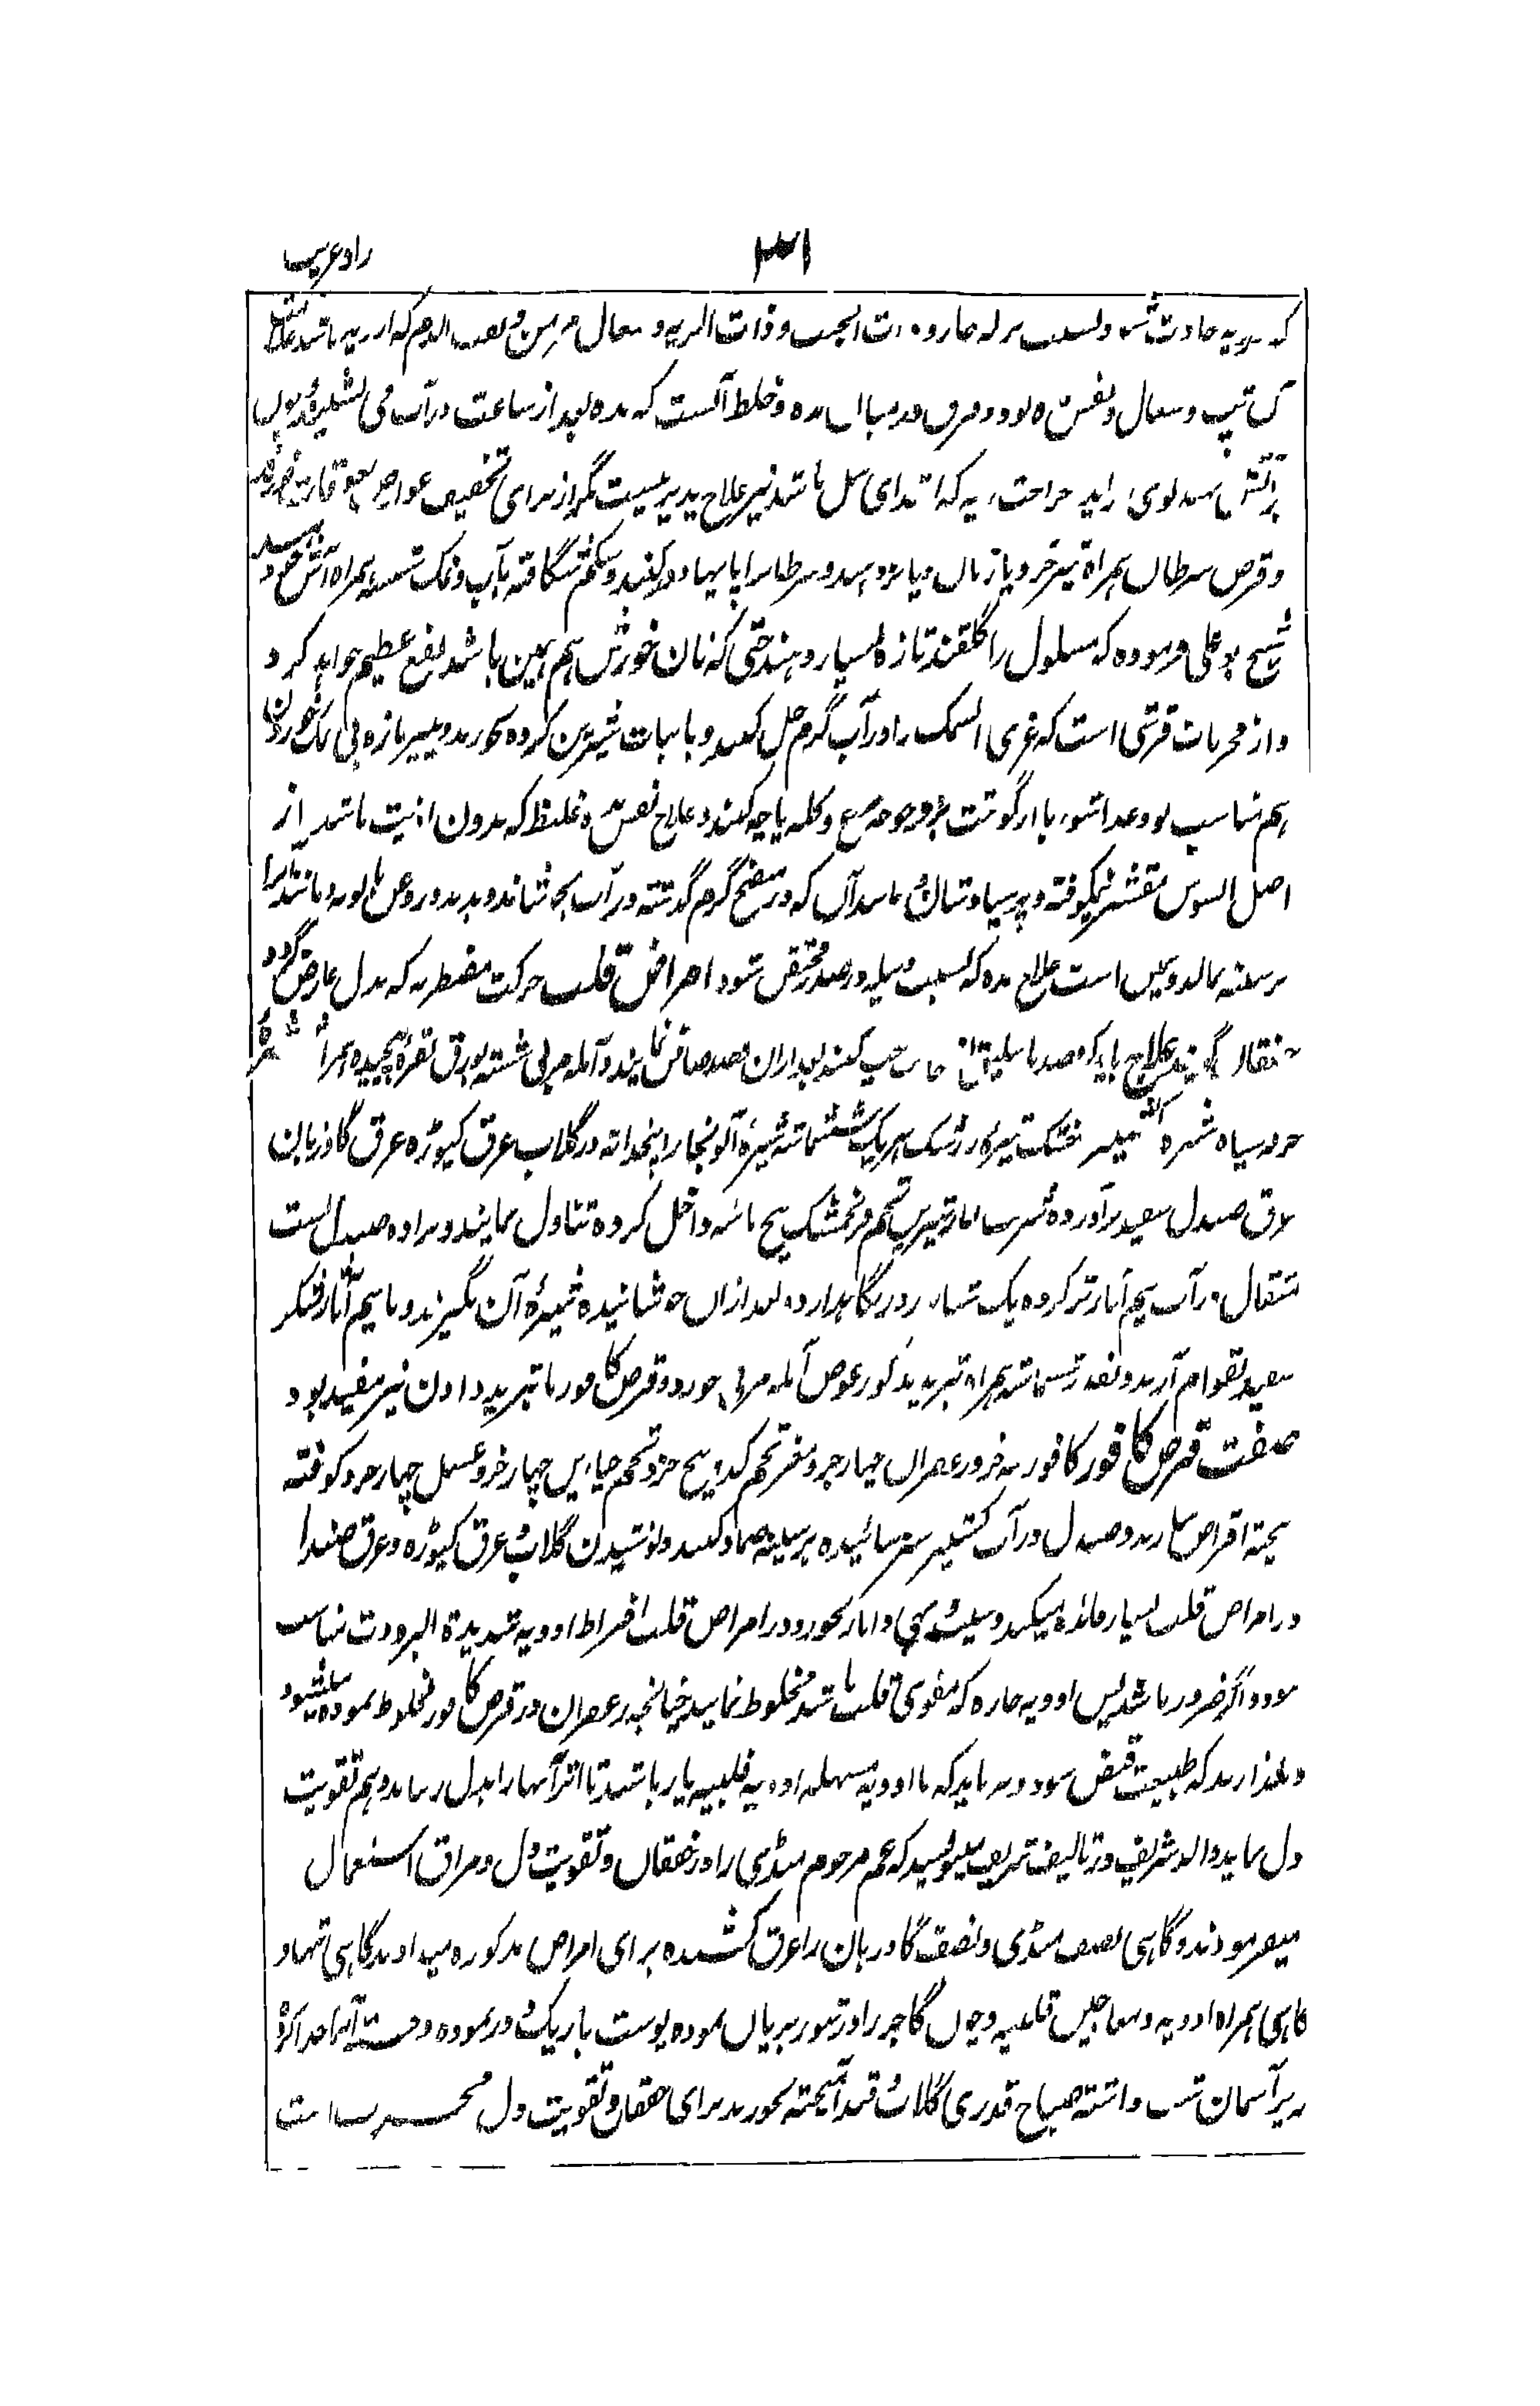 ٣١
زاد غریب
که بریه حادث شود بسبب نزله حاره و ذات الجنب و ذات الریه و سعال مزمن و نفث الدم که از ریه باشد
تپ و سعال و نفس مده بود و فرق در میان مده و خلط آنست که مده بعد از ساعت در آب می نشیند و چون
بر آتش نهند بوی زاید جراحت ریه که ابتدای سل باشد نیز علاج پذیر نیست مگر از برای تخفیف عوارض
و قرص سرطان همراه شیر خر و یا زنان و یا بز دهند و سرطان را پایها دور کنند و شکم شگافته بآب و نمک شسته همراه آش
شیخ بو علی فرموده که مسلول را گلقند تازه بسیار دهند حتی که نان خورش هم همین باشد نفع عظیم خواهد کرد
و از مجربات قرشی است که غری السمک را در آب گرم حل کنند و بانبات شیرین کرده بخورند و پنیر تازه بی نمک خوردن
هم مناسب بود و غذا شوربا از گوشت بز و جوجه مرغ و کله پاچه کنند و علاج نفس مده غلیظ که بدون اذیت باشد از
اصل السوس مقشر نیمکوفته و پرسیاوشان باشد آن که در مطبخ گرم گذشته در آب بجوشانند و بدهند و روغن بابونه و مانند آنرا
بر سینه مالند و همین است علاج مده که بسبب دبیله در صدر محتقن شود امراض قلب حرکت مضطربه که بدل عارض گردد
خفقان گویند علاج باید که فصد باسلیق از جانب چپ کنند بعد از ان فصد صافن نمایند و آمله مربی شسته بورق نقره پیچیده همراه شیره
خرفه سیاه شیره کشنیز خشک شیره زرشک هر یک ششماشه شیره آلو بخارا پنجدانه در گلاب عرق کیوڑه عرق گاوزبان
عرق صندل سفید برآورده شربت انار شیرین تخم فرنجمشک پنج ماشه داخل کرده تناول نمایند و براده صندل بست
مثقال در آب نیم آثار تر کرده یک شبانه روز نگاهدارد بعد از ان جوشانیده شیره آن بگیرند و با نیم آثار شکر
سفید بقوام آرند و بقدر ششماشه همراه تبرید مذکور عوض آمله مربی خورد و قرص کافور با تبرید دادن نیز مفید بود
صفت قرص کافور کافور سه جزو زعفران چهار جزو مغز تخم کدو پنج جزو تخم خیارین چهار جزو عسل چهار جزو کوفته
بیخته اقراص سازند و صندل در آب کشنیز سبز سائیده بر سینه ضماد کنند و نوشیدن گلاب عرق کیوڑه و عرق صندل
در امراض قلب بسیار فائده میکند و سیب و بهی و انار بخورد و در امراض قلب افراط ادویه شدیدة البرودت مناسب
نبود و اگر ضرور باشد پس ادویه حاره که مقوی قلب باشد مخلوط نمایند چنانچه زعفران در قرص کافور مخلوط نموده میشود
و نگذارند که طبیعت قبض شود و باید که با ادویه مسهله ادویه قلبیه یار باشد تا اثر آنها را بدل رساند و هم تقویت
دل نماید والد شریف در تالیف شریف مینویسد که عم مرحوم منڈی را در خفقان و تقویت دل و مراق استعمال
میفرمودند و گاهی نصف منڈی و نصف گاوزبان را عرق کشیده برای امراض مذکوره میدادند گاهی تنها و
گاهی همراه ادویه و معاجین قلبیه و چون گاجر را در تنور بریان نموده پوست باریک دور نموده و خسته آنرا جدا کرده
زیر آسمان شب داشته صباح قدری گلاب و قند آمیخته بخورند برای خفقان و تقویت دل مجرب است